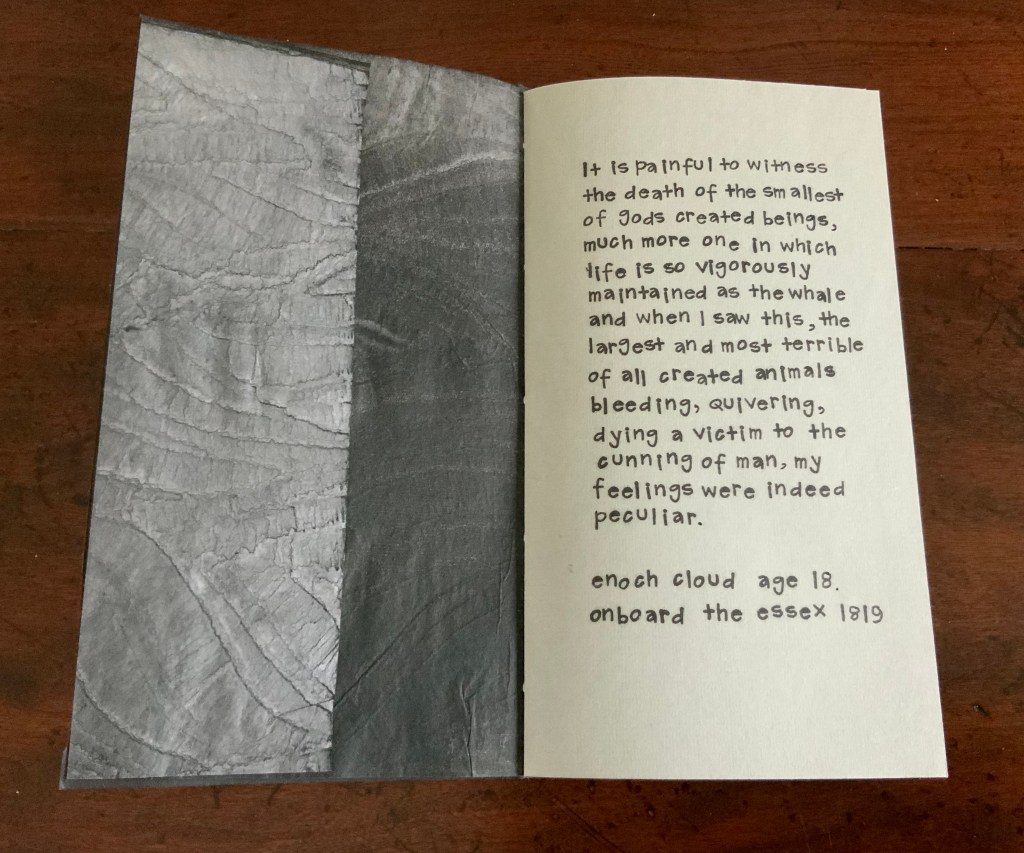 It is painful to witness
the death of the smallest
of gods created beings,
much more one in which
life is so vigorously
maintained as the whale
and when I saw this, the
largest and most terrible
of all created animals
bleeding, quivering,
dying a victim to the
cunning of man, my
feelings were indeed
peculiar.
enoch cloud age 18.
onboard the essex 1819